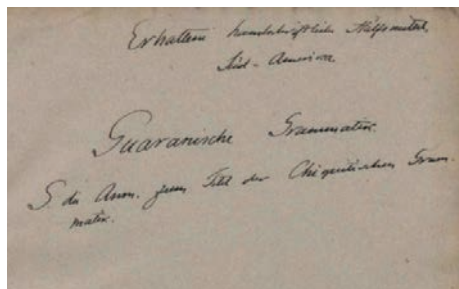 Erhaltene handschriftliche Hülfsmittel,
Süd-America
Guaranische Grammatik.
S. die Anm. zum Titel der Chiquitischen Gram-
matik.